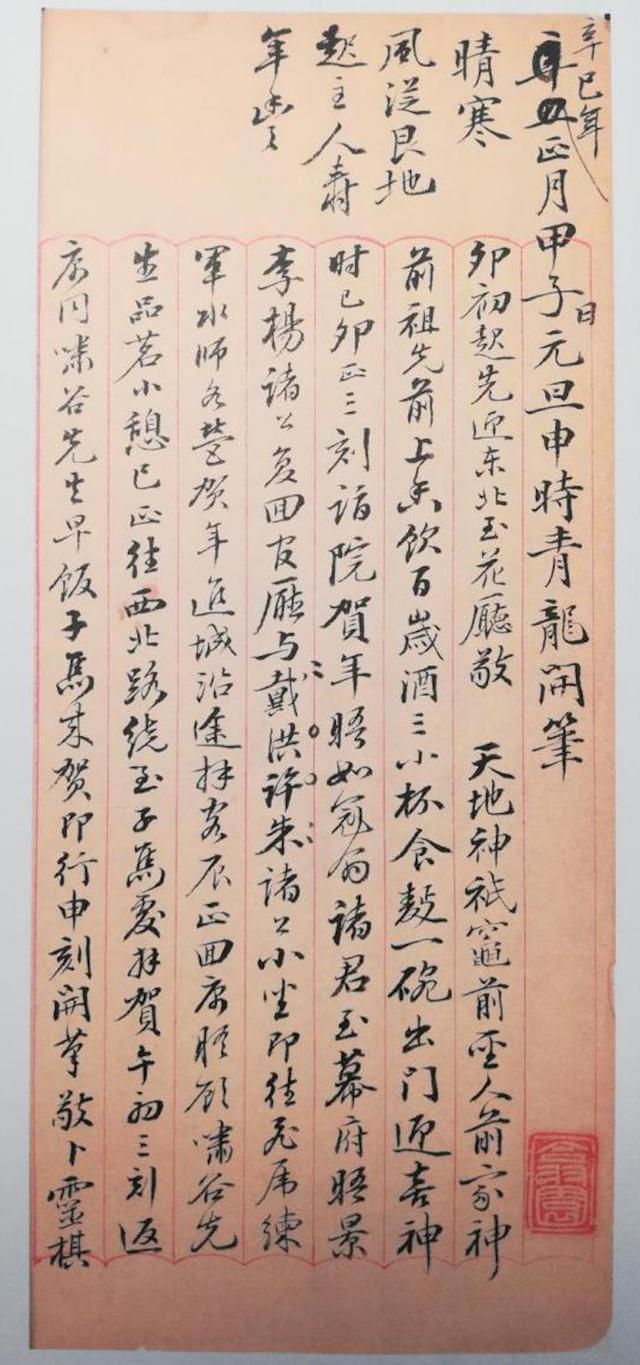 辛巳年
正月甲子日元旦申時青龍開筆
晴寒
風從艮地
起主人壽
年豊
卯初起先迎东北至花廳敬 天地神祇竈前聖人前家神
前祖先前上香飲百歲酒三小杯食麪一碗出門迎喜神
时已卯正三刻詣院賀年晤如冠翁諸君至幕府晤景
李楊諸公复回官廳与戴洪許朱諸公小坐即往飛虎練
軍水師各營贺年進城沿途拜客辰正回寓晤顾嘯谷先
生品茗小憩已正往西北路绕至子馬處拜賀午初三刻返
寓同嘯谷先生早饭子馬来贺即行申刻開筆敬卜靈棋